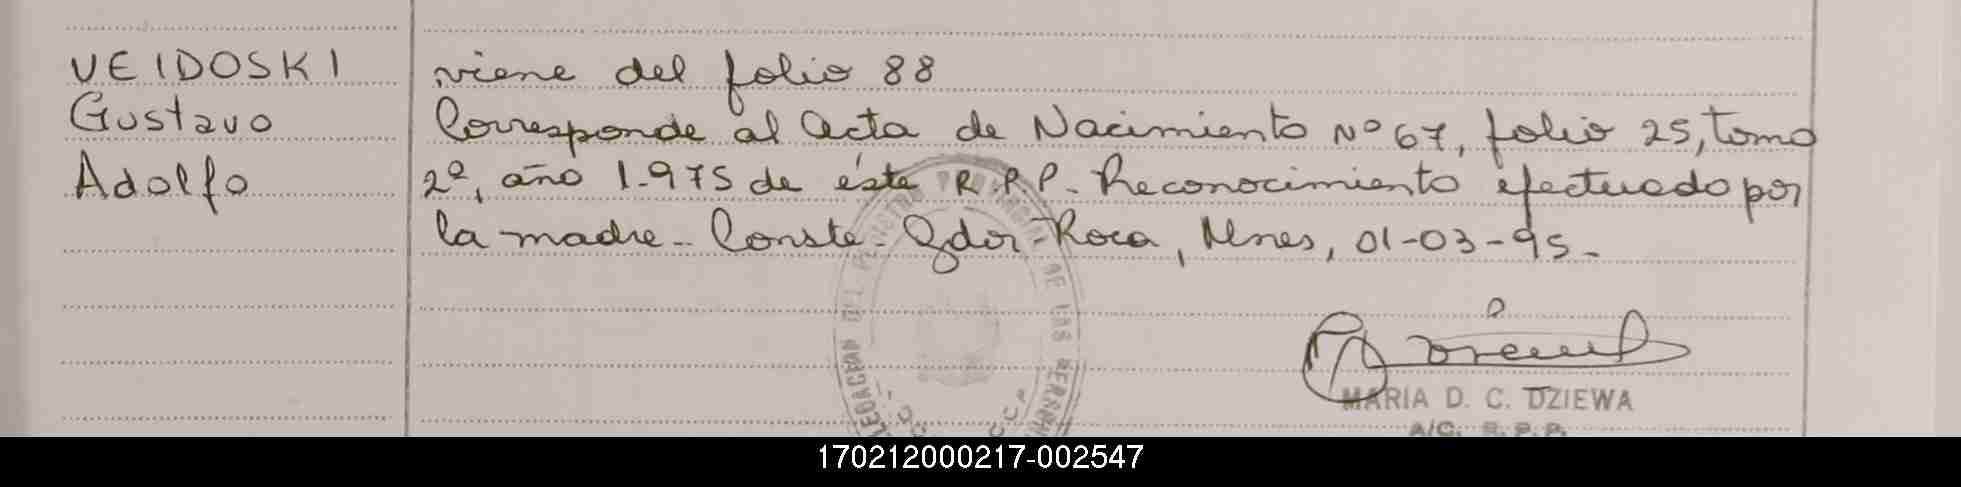 VEIDOSKI
Gustavo
Adolfo
viene del folio 88
Corresponde al Acta de Nacimiento Nº 67, folio 25, tomo
2º, año 1.975 de éste R.P.P. Reconocimiento efectuado por
la madre.. Conste.- Gdor. Roca, Mnes, 01-03-95.-
MARIA D. C. DZIEWA
A/C. R. P. P.
DELEGACION DEL REGISTRO PROVINCIAL DE LAS PERSONAS
170212000217-002547